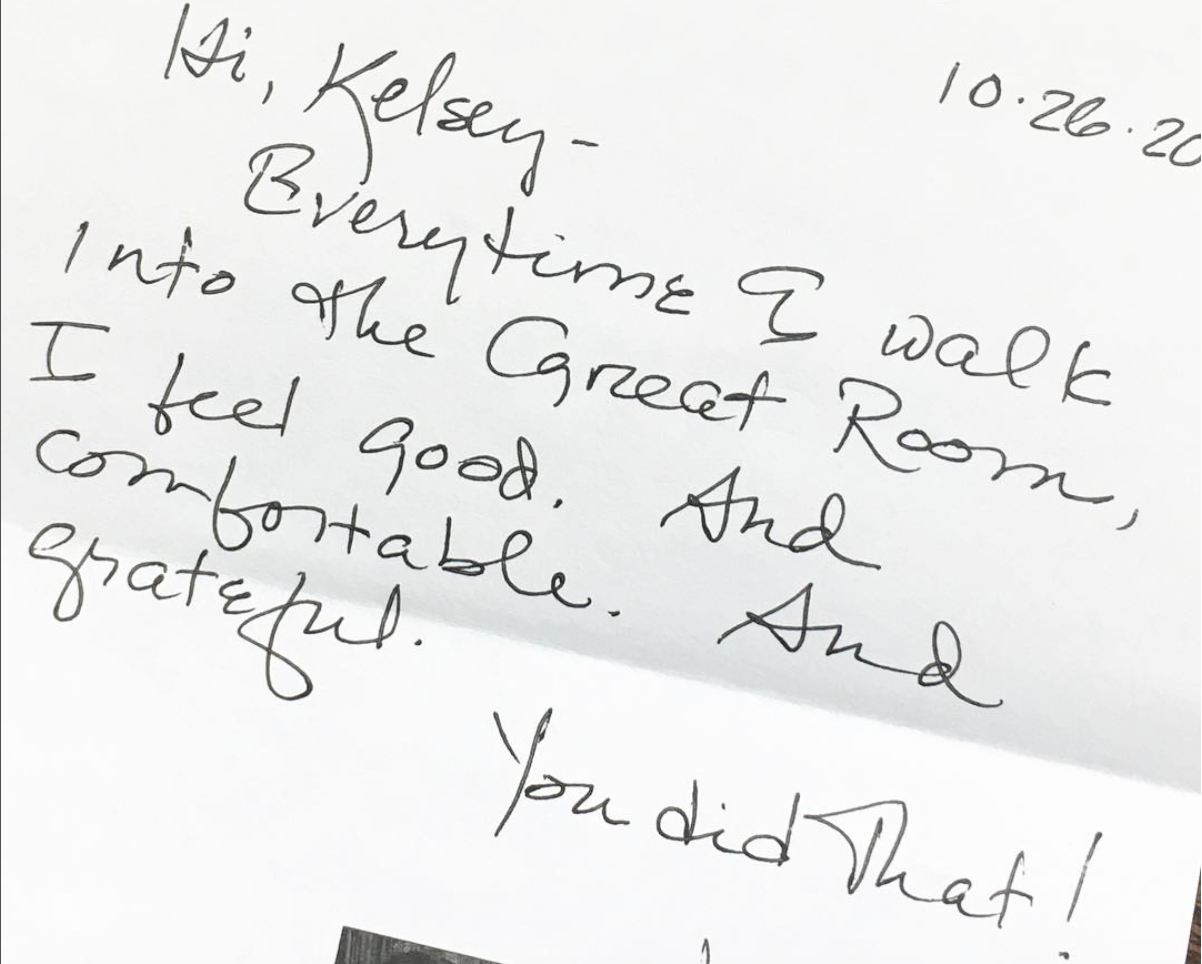 10.26.20
Hi, Kelsey-
Everytime I walk
into the Great Room,
I feel good. And
comfortable. And
grateful.
You did That!